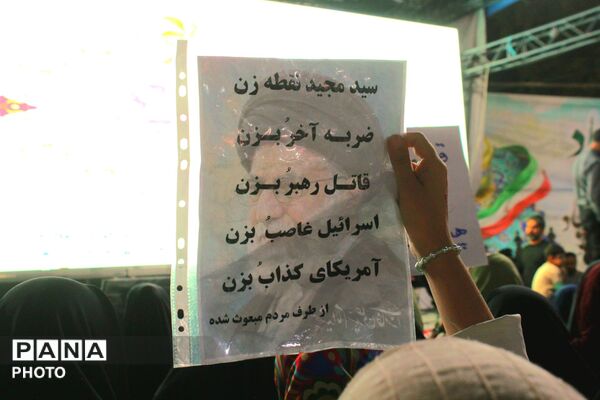 سید مجید نقطه زن
ضربه آخرُ بـزن
قاتل رهبرُ بـزن
اسرائیل غاصبُ بزن
آمریکای کذابُ بزن
از طرف مردم مبعوث شده
PANA
PHOTO